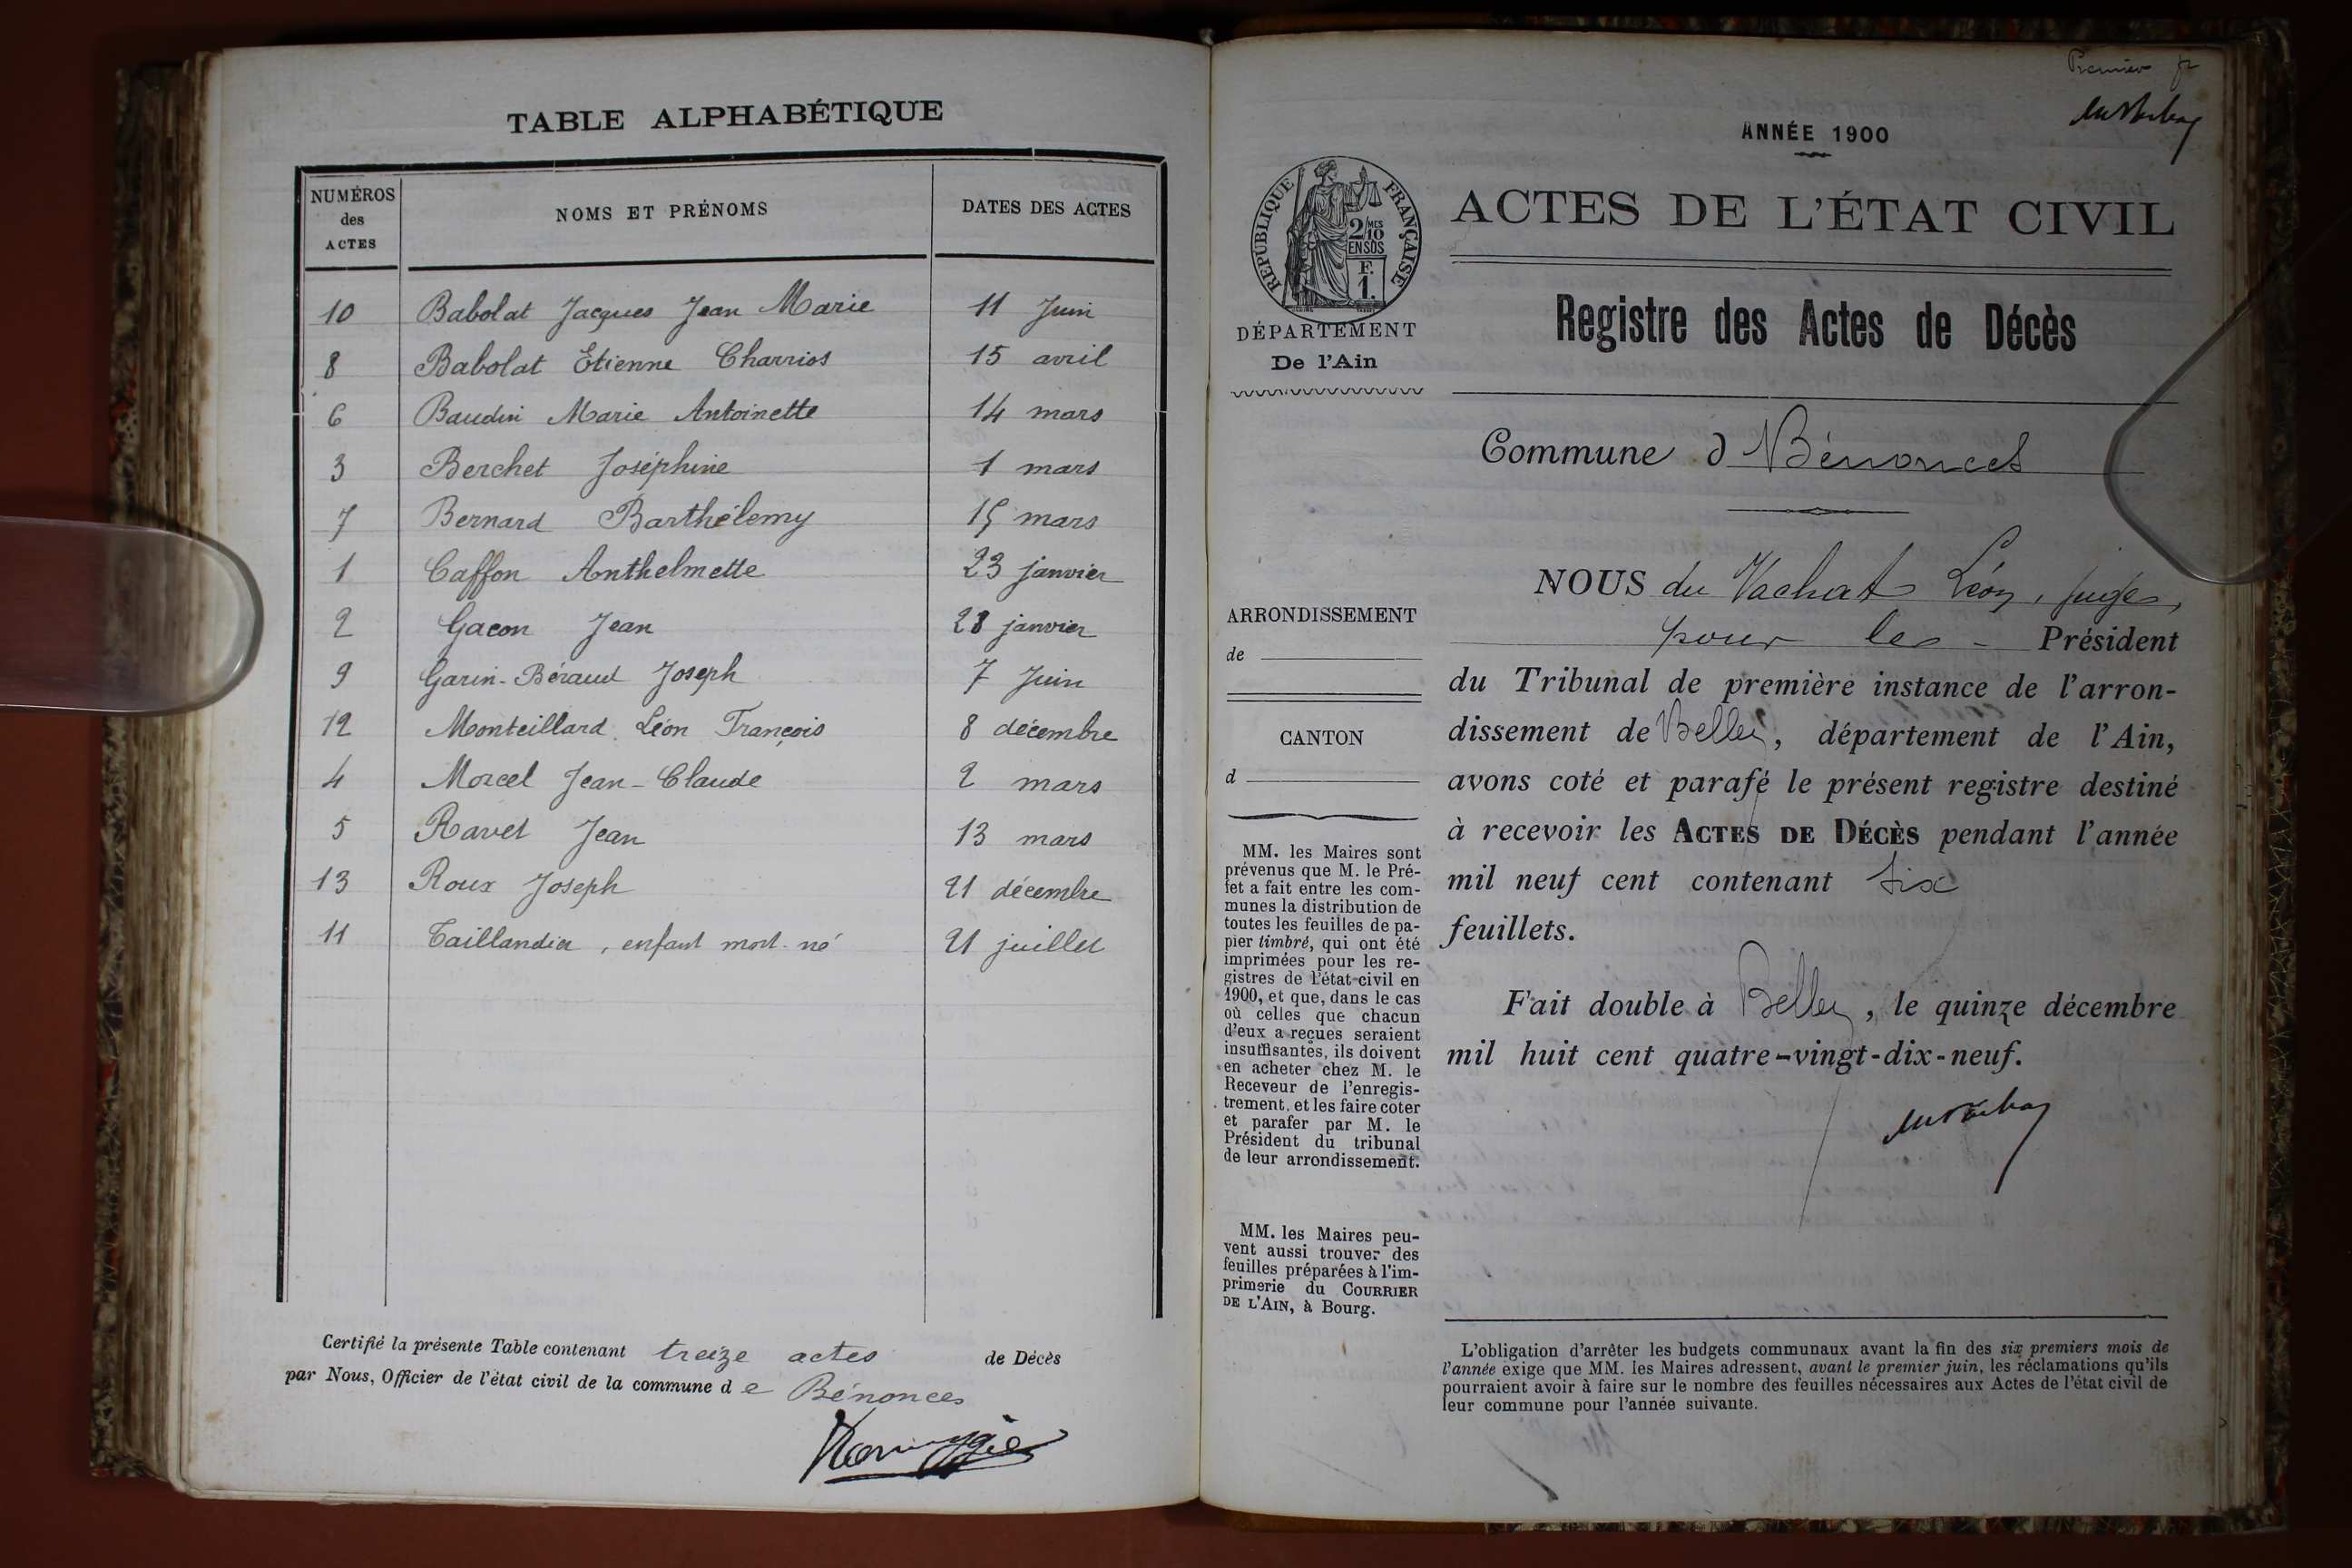 TABLE ALPHABÉTIQUE
NUMÉROS des ACTES
NOMS ET PRÉNOMS
DATES DES ACTES
10 Babolat Jacques Jean Marie 11 Juin
8 Babolat Etienne Charrios 15 avril
6 Baudin Marie Antoinette 14 mars
3 Berchet Joséphine 1 mars
7 Bernard Barthélemy 15 mars
1 Caffon Anthelmette 23 janvier
2 Gacon Jean 28 janvier
9 Garin-Béraud Joseph 7 Juin
12 Monteillard Léon François 8 décembre
4 Morcel Jean-Claude 2 mars
5 Ravet Jean 13 mars
13 Roux Joseph 21 décembre
11 Taillandier, enfant mort-né 21 juillet
Certifié la présente Table contenant treize actes de Décès
par Nous, Officier de l'état civil de la commune de Bénonces
Premier
ANNÉE 1900
RÉPUBLIQUE FRANÇAISE
2/10 MES
EN SUS
F.
1.
DÉPARTEMENT
De l'Ain
ACTES DE L'ÉTAT CIVIL
Registre des Actes de Décès
Commune d Bénonces
ARRONDISSEMENT
de
CANTON
d
MM. les Maires sont
prévenus que M. le Pré-
fet a fait entre les com-
munes la distribution de
toutes les feuilles de pa-
pier timbré, qui ont été
imprimées pour les re-
gistres de l'état-civil en
1900, et que, dans le cas
où celles que chacun
d'eux a reçues seraient
insuffisantes, ils doivent
en acheter chez M. le
Receveur de l'enregis-
trement, et les faire coter
et parafer par M. le
Président du tribunal
de leur arrondissement.
MM. les Maires peu-
vent aussi trouver des
feuilles préparées à l'im-
primerie du COURRIER
DE L'AIN, à Bourg.
NOUS du Vachat Léon, juge,
pour le Président
du Tribunal de première instance de l'arron-
dissement de Belley, département de l'Ain,
avons coté et parafé le présent registre destiné
à recevoir les ACTES DE DÉCÈS pendant l'année
mil neuf cent contenant six
feuillets.
Fait double à Belley, le quinze décembre
mil huit cent quatre-vingt-dix-neuf.
L'obligation d'arrêter les budgets communaux avant la fin des six premiers mois de
l'année exige que MM. les Maires adressent, avant le premier juin, les réclamations qu'ils
pourraient avoir à faire sur le nombre des feuilles nécessaires aux Actes de l'état civil de
leur commune pour l'année suivante.